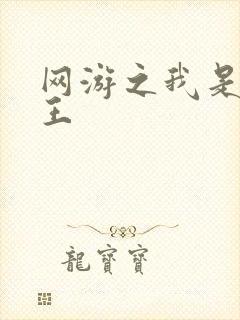 网游之我是
王
龍寶寶